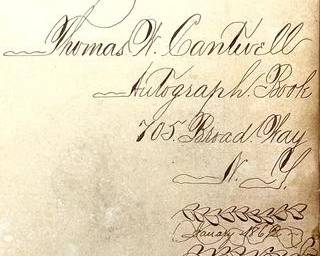 Thomas W. Cantwell
Autograph Book
705. Broad. Way
N. Y.
January 1862